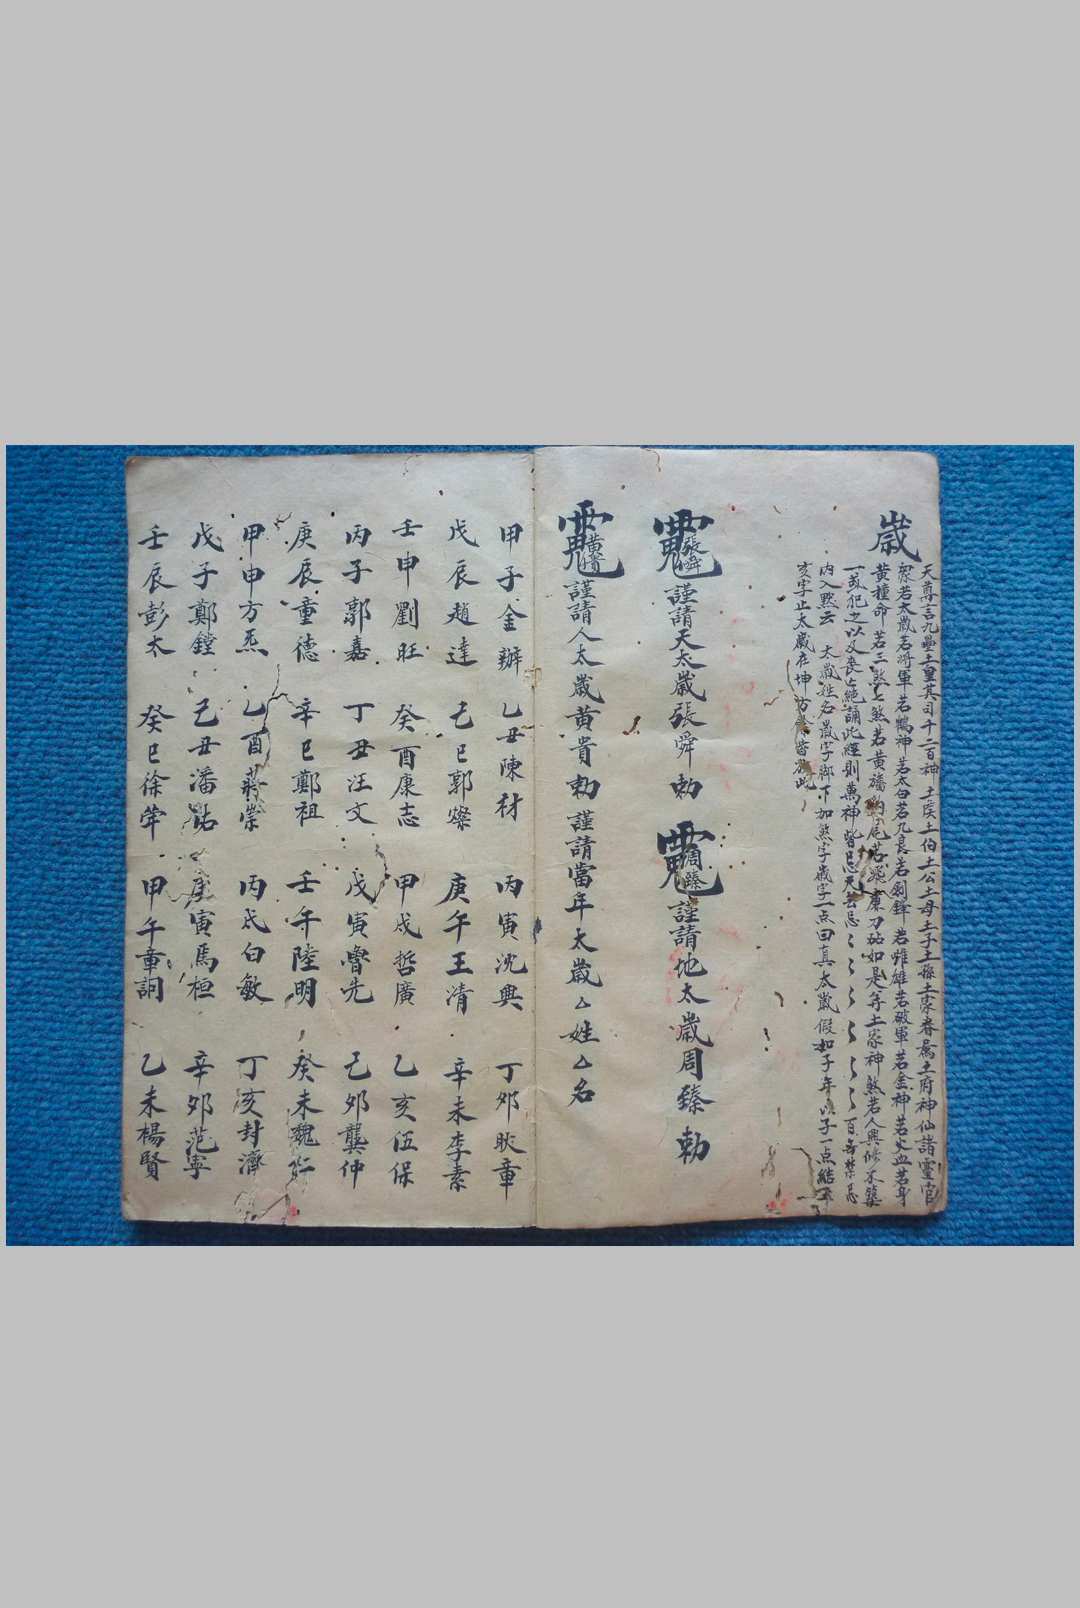 歳
天尊言九壘土皇其司千二百神土侯土伯土公土母土子土孫土家眷属土府神仙諸靈官
若太歳若將軍若鶴神若太白若九良若劍鋒若雌雄若破軍若金神若火血若身
黄撞命若三煞七煞若黄旛豹尾若飛廉刀砧如是等土家神煞若人興修不築
一或犯之以及喪亡絶誦此經則萬神皆忌百無禁忌
内入黙云 太歳姓名歳字脚下加煞字歳字一点曰真太歳假如子年以子一点結
亥字止太歳在坤方
張舜謹請天太歳張舜勅 周臻謹請地太歳周臻勅
黃貴謹請人太歳黃貴勅謹請當年太歳厶姓厶名
甲子金辦 乙丑陳材 丙寅沈興 丁夘耿章
戊辰趙達 己巳郭燦 庚午王清 辛未李素
壬申劉旺 癸酉康志 甲戌哲廣 乙亥伍保
丙子郭嘉 丁丑汪文 戊寅魯先 己夘龔仲
庚辰董德 辛巳鄭祖 壬午陸明 癸未魏仁
甲申方炁 乙酉蔣崇 丙戌白敏 丁亥封濟
戊子鄭鏜 己丑潘 庚寅馬桓 辛夘范寧
壬辰彭太 癸巳徐 甲午章詞 乙未楊賢